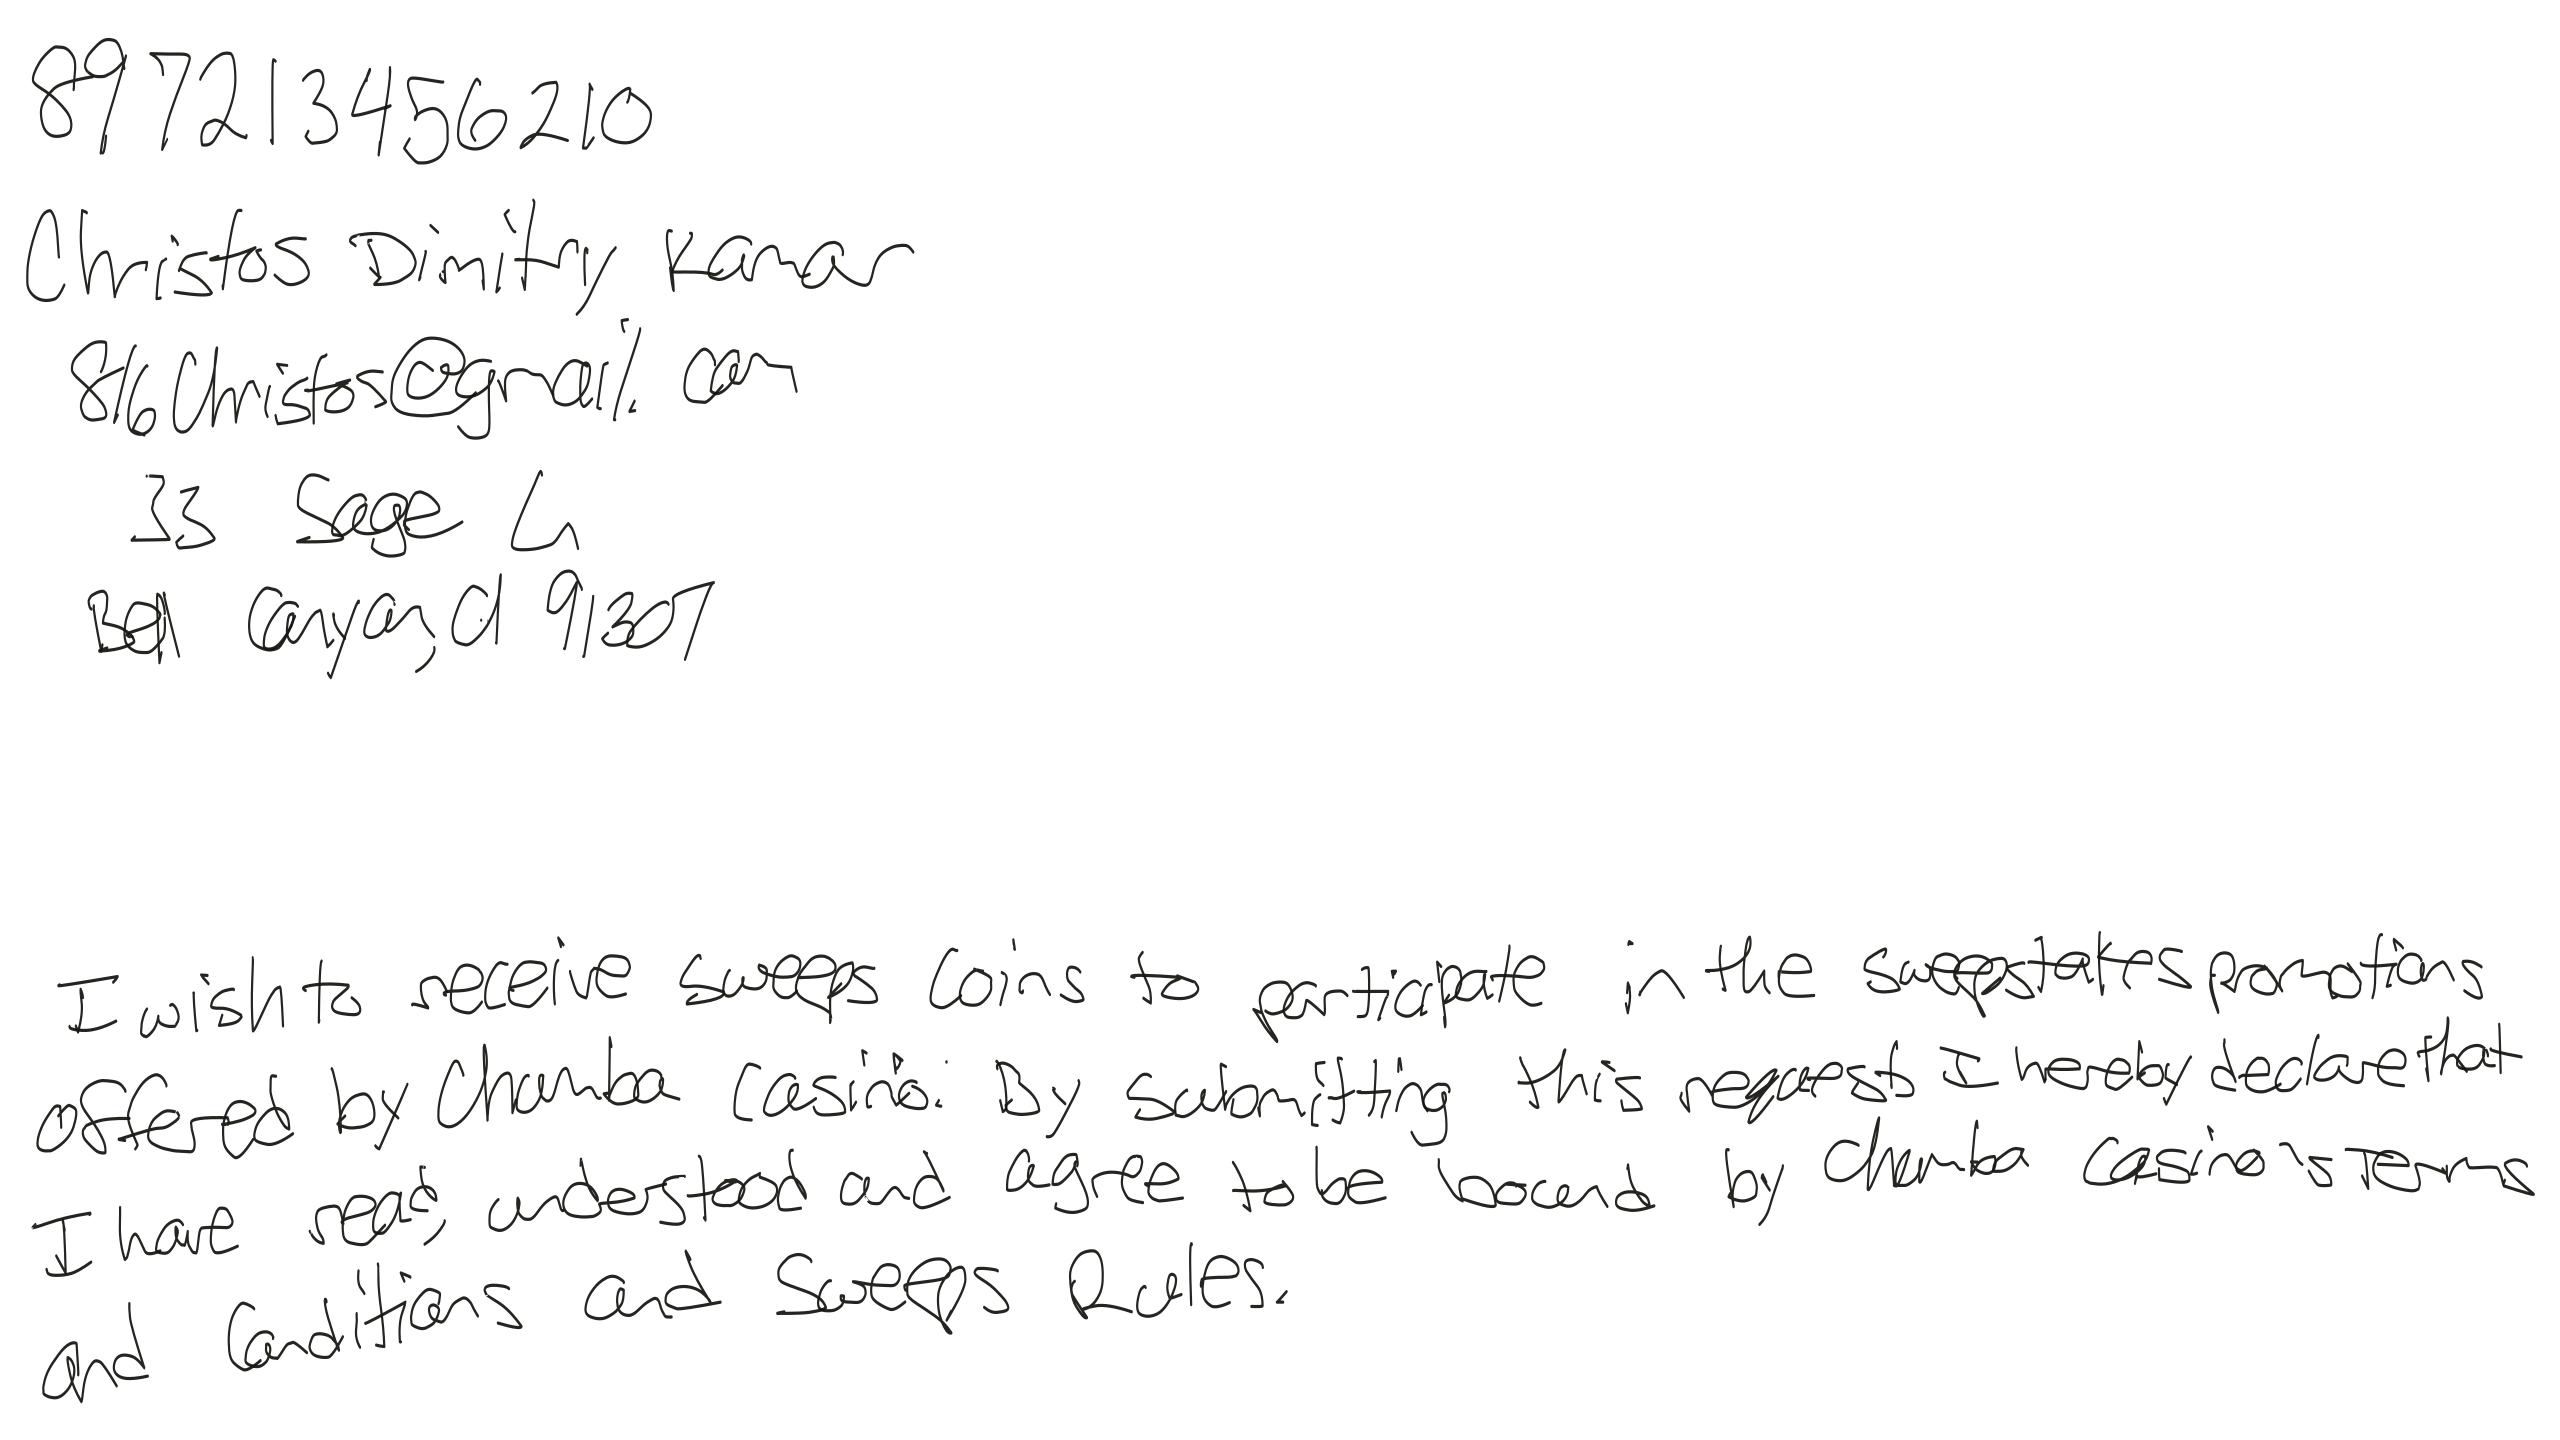 897213456210
Christos Dimitry Kamar
816Christos@gmail.com
33 Sage Ln
Bell Canyon, CA 91307
I wish to receive sweeps coins to participate in the sweepstakes promotions
offered by Chumba Casino. By submitting this request I hereby declare that
I have read, understood and agree to be bound by Chumba Casino's Terms
and Conditions and Sweeps Rules.